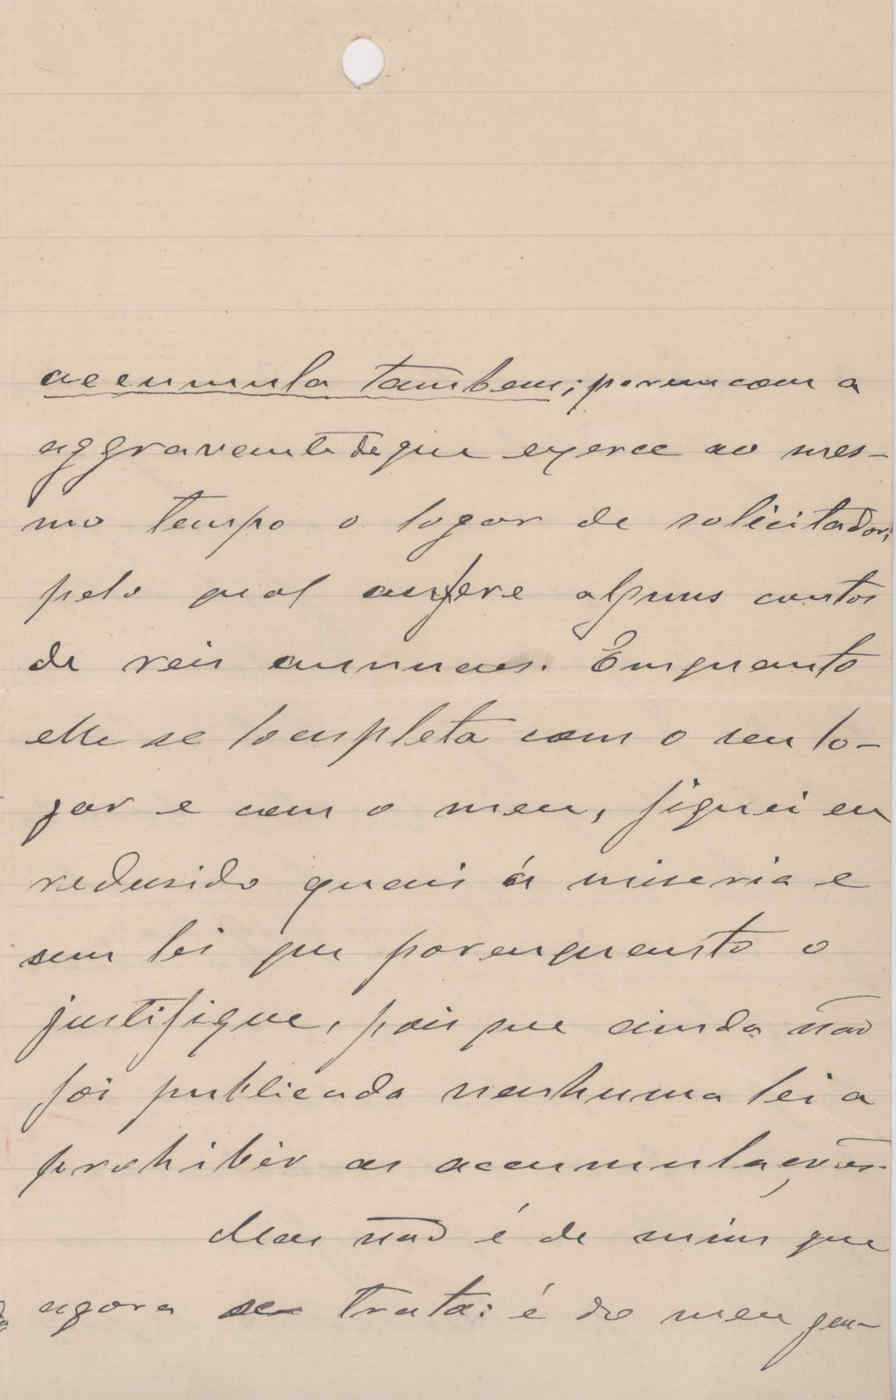 accumula tambem; porem com a
aggravante de que exerce ao mes-
mo tempo o logar de solicitador,
pelo qual aufere alguns contos
de reis annuaes. Emquanto
elle se locupleta com o seu lo-
gar e com o meu, fiquei eu
redusido quasi á miseria e
sem lei que porenquanto o
justifique, pois que ainda não
foi publicada nenhuma lei a
prohibir as accumulações.
Mas não é de mim que
agora se trata: é do meu gen-